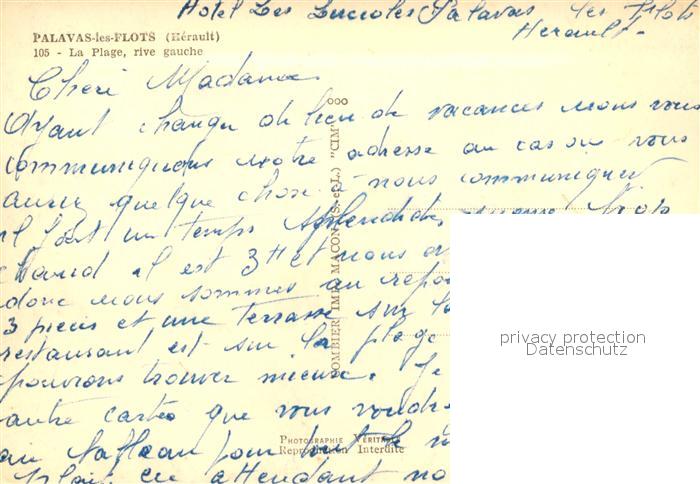 Hotel Les Lucioles Palavas les Flots
Herault -
PALAVAS-les-FLOTS (Hérault)
105 - La Plage, rive gauche
Cheri Madame
Ayant changu de lieu de vacances nous vous
communiquons notre adresse au cas ou vous
auriez quelque chose à nous communiquer
il fait un temps splendide, meme trop
chaud il est 3H et nous
donc nous sommes au repos
3 pieces et une terrasse sur la
restaurant est sur la plage
pouvons trouver mieux. Je
autre cartes que vous voudr
au tableau pour tout le
plait en attendant no
COMBIER IMP. MACON (S.-&-L.) "CIM"
PHOTOGRAPHIE VÉRITABLE
Reproduction Interdite
privacy protection
Datenschutz